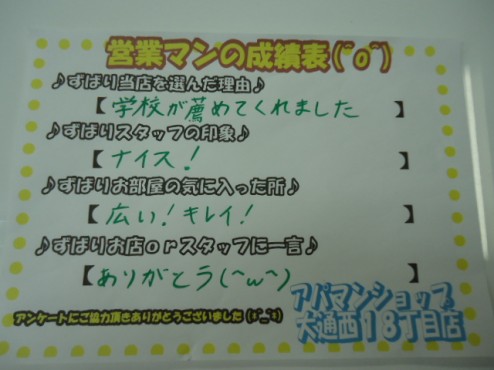 営業マンの成績表(~o~)
♪ずばり当店を選んだ理由♪
【学校が薦めてくれました】
♪ずばりスタッフの印象♪
【ナイス!】
♪ずばりお部屋の気に入った所♪
【広い!キレイ!】
♪ずばりお店orスタッフに一言♪
【ありがとう(~w~)】
アンケートにご協力頂きありがとうございました(*^_^*)
アパマンショップ
大通西18丁目店